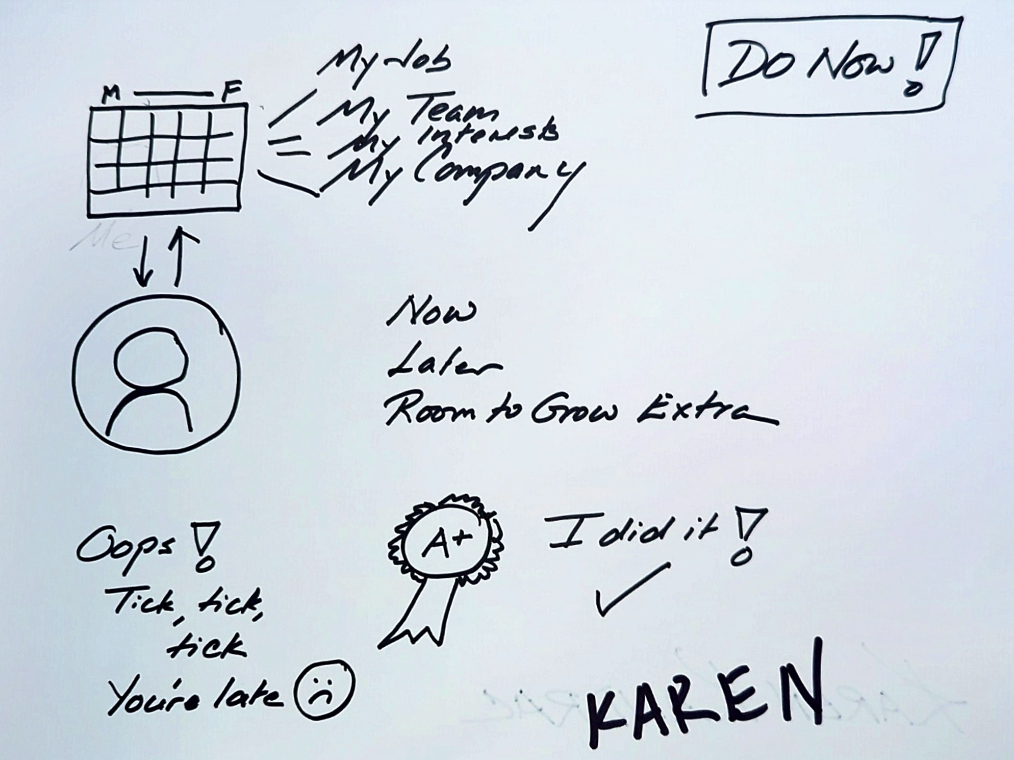 Do Now!
M F
My Job
My Team
My Interests
My Company
Me
Now
Later
Room to Grow Extra
Oops!
Tick, tick,
tick
You're late
A+
I did it!
KAREN